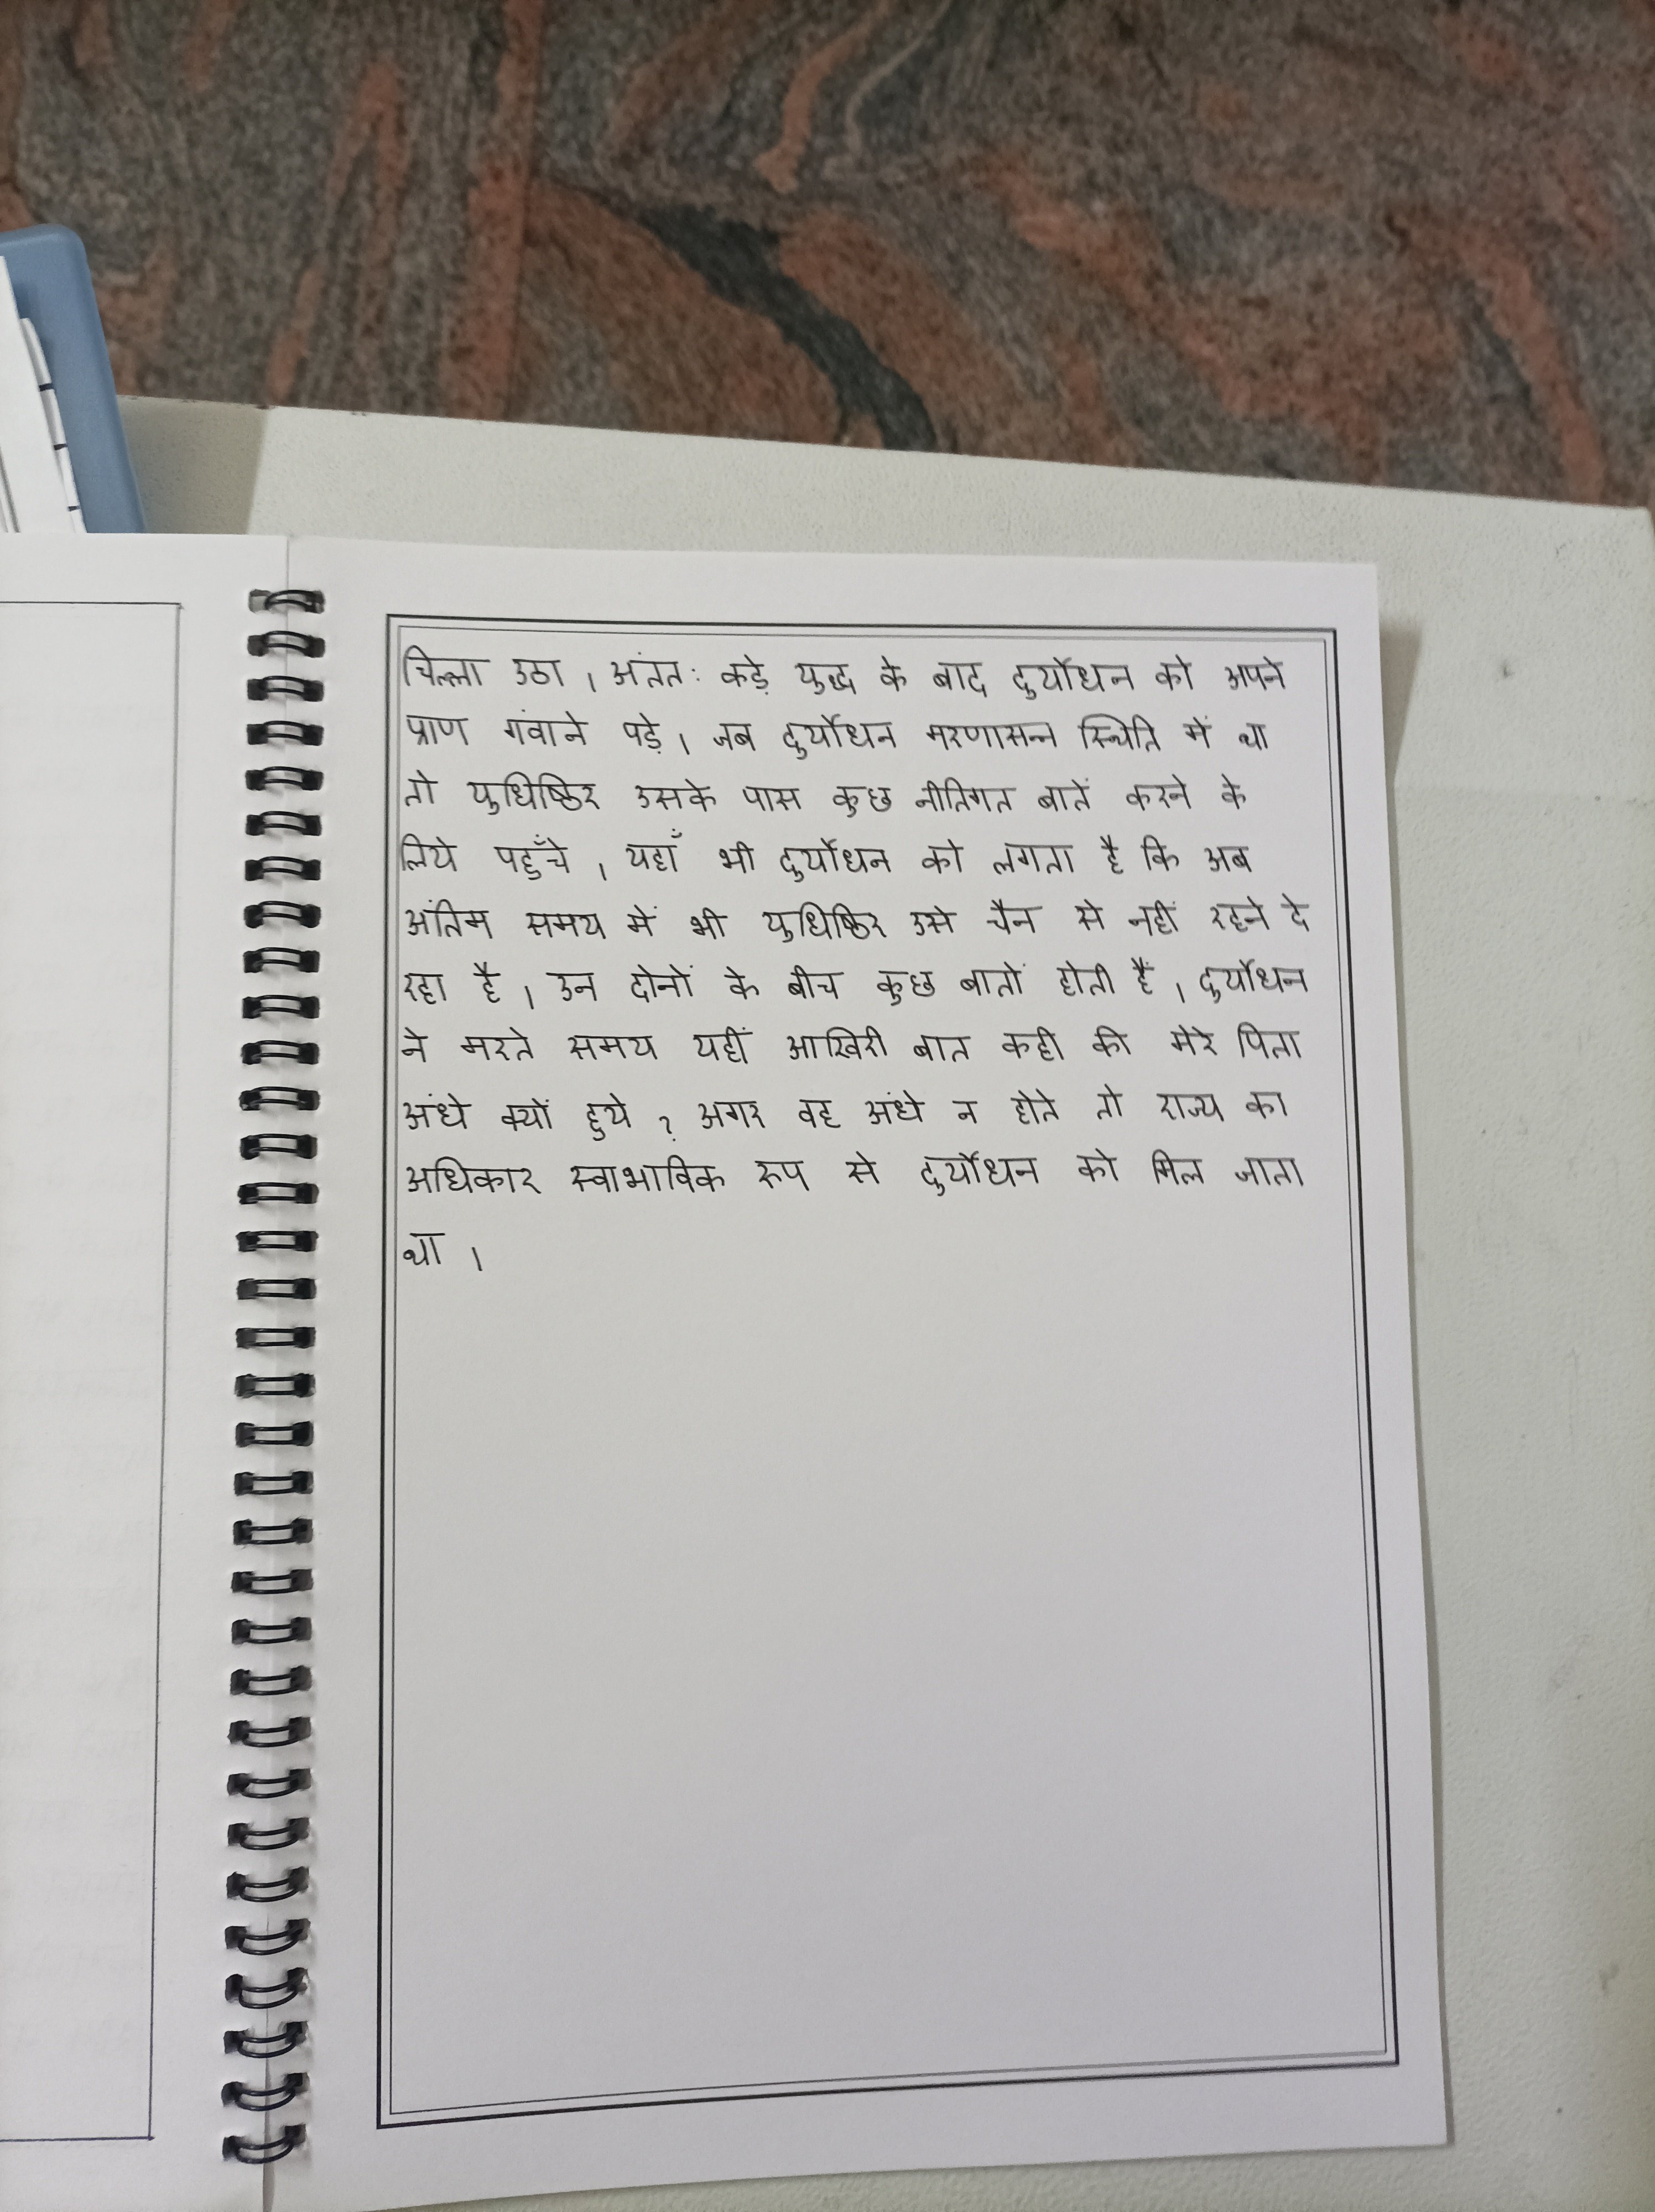 चिल्ला उठा । अंतत: कड़े युद्ध के बाद दुर्योधन को अपने
प्राण गंवाने पड़े । जब दुर्योधन मरणासन्न स्थिति में था
तो युधिष्ठिर उसके पास कुछ नीतिगत बातें करने के
लिये पहुँचे । यहाँ भी दुर्योधन को लगता है कि अब
अंतिम समय में भी युधिष्ठिर उसे चैन से नहीं रहने दे
रहा है । उन दोनों के बीच कुछ बातों होती हैं । दुर्योधन
ने मरते समय यहीं आखिरी बात कही की मेरे पिता
अंधे क्यों हुये ? अगर वह अंधे न होते तो राज्य का
अधिकार स्वाभाविक रूप से दुर्योधन को मिल जाता
था ।